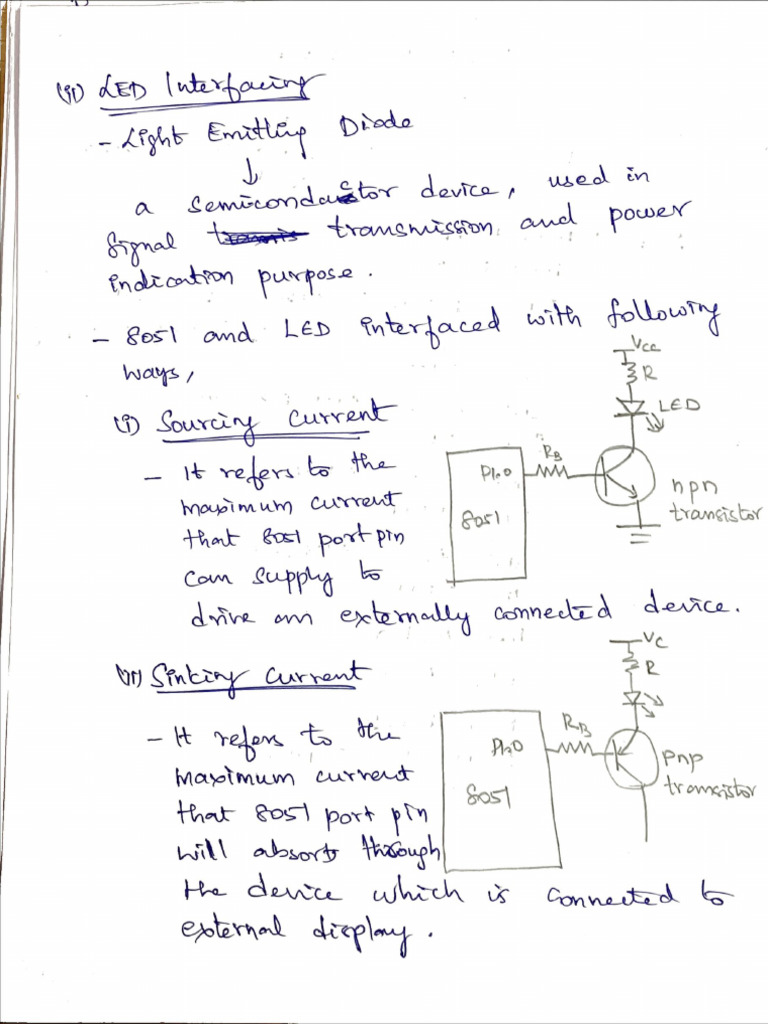 (ii) LED Interfacing
- Light Emitting Diode
↓
a semiconductor device, used in
signal transmission and power
indication purpose.
- 8051 and LED interfaced with following
ways,
Vcc
R
LED
(i) Sourcing current
- It refers to the
RB
P1.0
maximum current
npn
transistor
8051
that 8051 port pin
can supply to
drive an externally connected device.
Vc
R
(ii) Sinking current
- It refers to the
RB
P1.0
pnp
transistor
maximum current
8051
that 8051 port pin
will absorb through
the device which is connected to
external display.